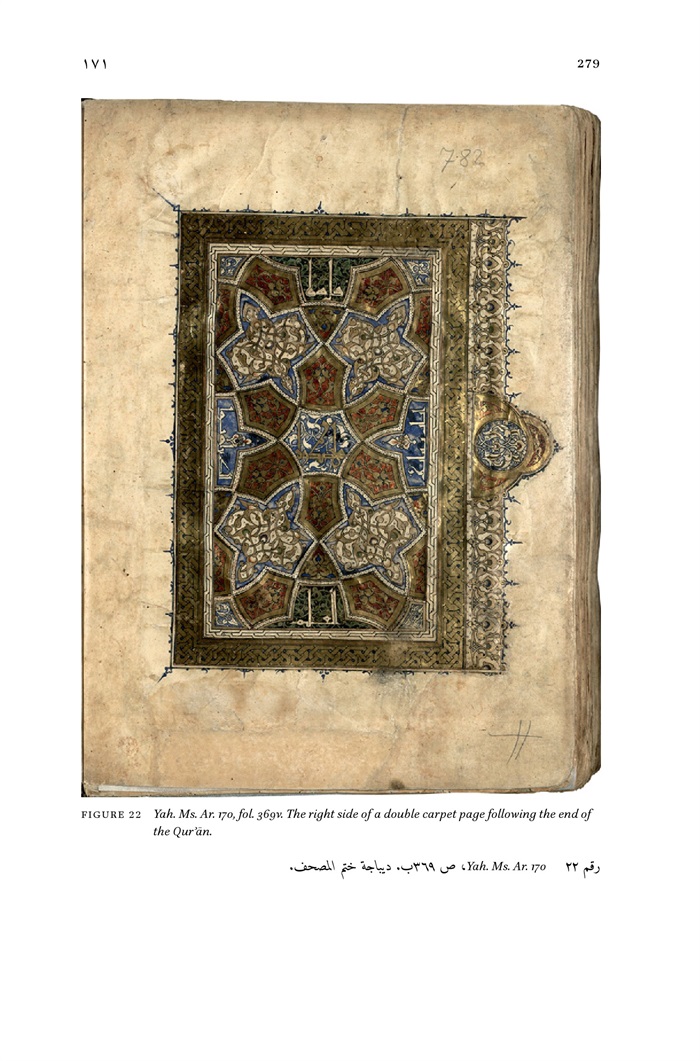 ١٧١
279
782
FIGURE 22 Yah. Ms. Ar. 170, fol. 369v. The right side of a double carpet page following the end of
the Qurʾān.
رقم ٢٢ Yah. Ms. Ar. 170، ص ٣٦٩ب. ديباجة ختم المصحف.